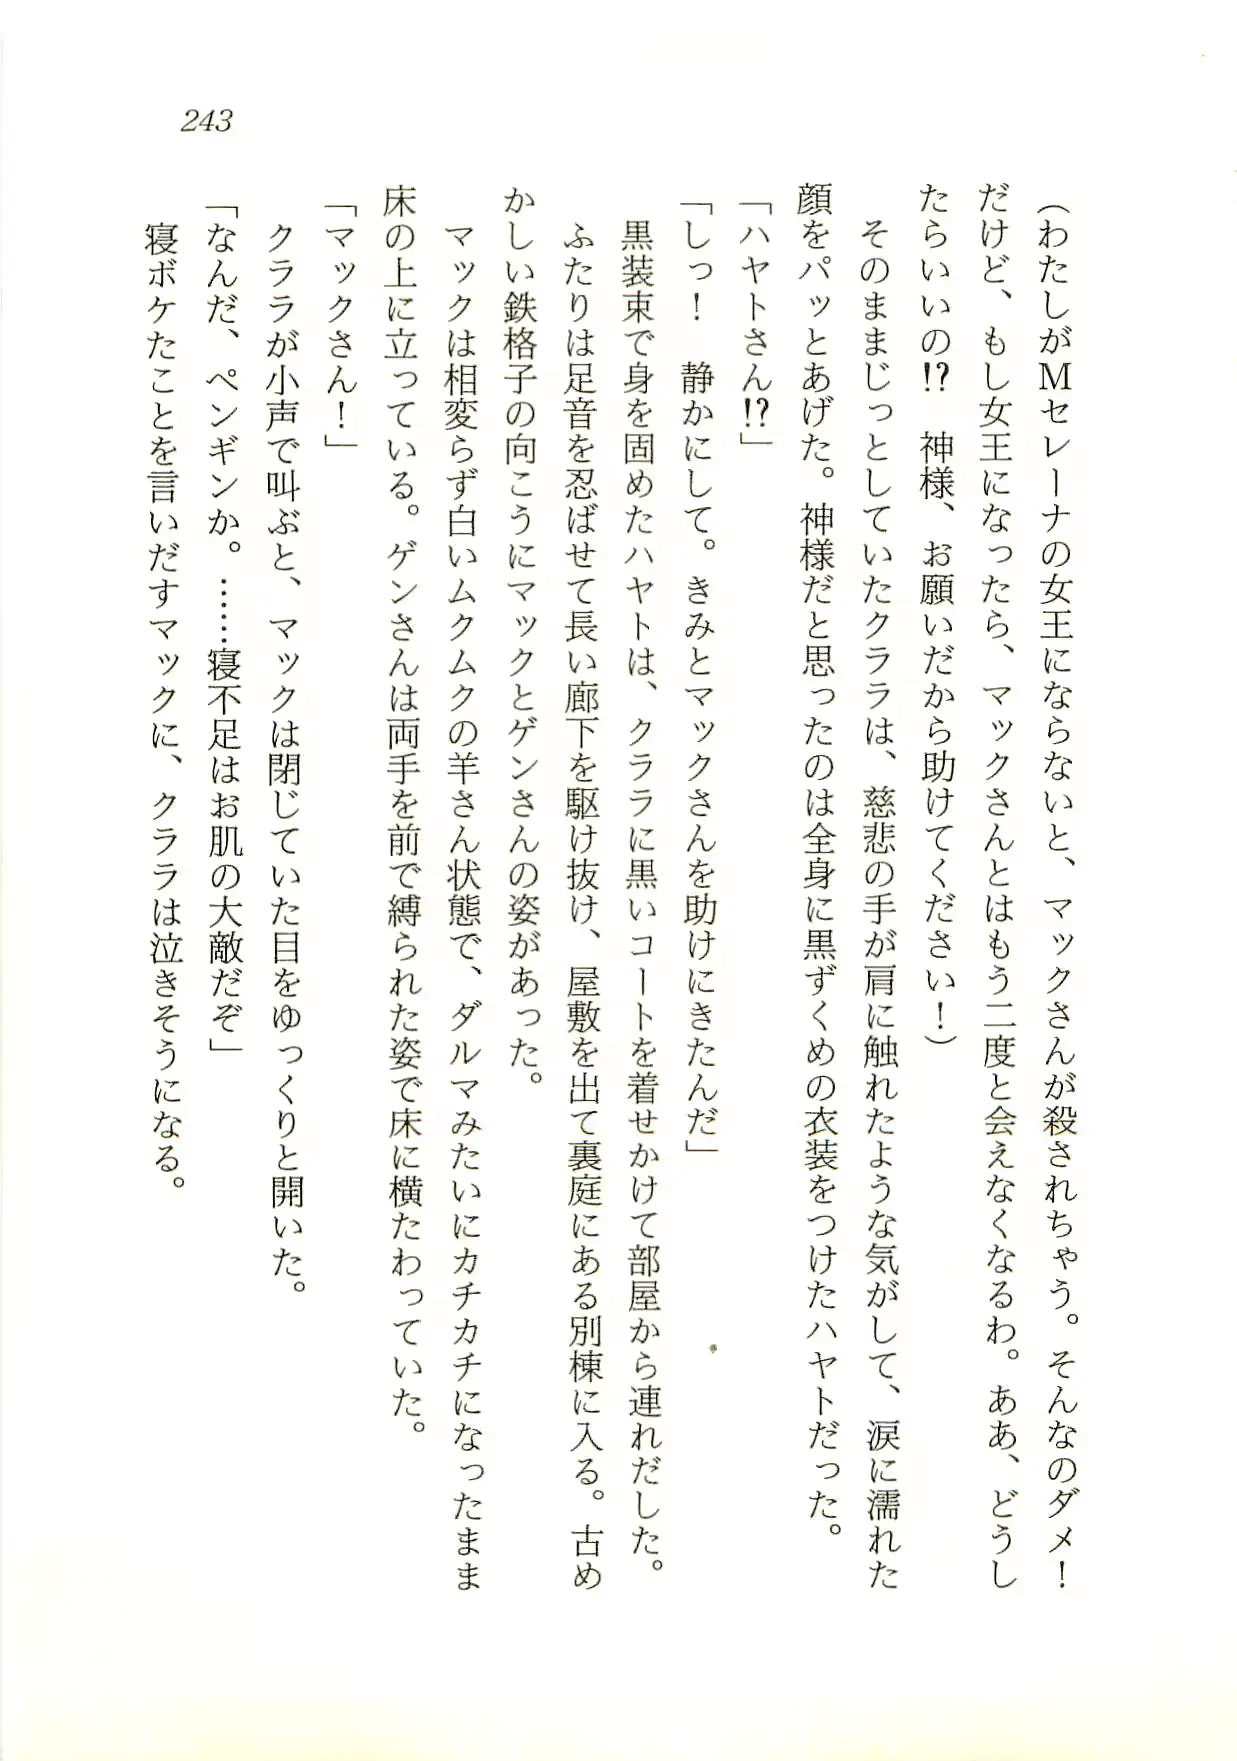 243
（わたしがＭセレーナの女王にならないと、マックさんが殺されちゃう。そんなのダメ！
だけど、もし女王になったら、マックさんとはもう二度と会えなくなるわ。ああ、どうし
たらいいの!?　神様、お願いだから助けてください！）
　そのままじっとしていたクララは、慈悲の手が肩に触れたような気がして、涙に濡れた
顔をパッとあげた。神様だと思ったのは全身に黒ずくめの衣装をつけたハヤトだった。
「ハヤトさん!?」
「しっ！　静かにして。きみとマックさんを助けにきたんだ」
　黒装束で身を固めたハヤトは、クララに黒いコートを着せかけて部屋から連れだした。
　ふたりは足音を忍ばせて長い廊下を駆け抜け、屋敷を出て裏庭にある別棟に入る。古め
かしい鉄格子の向こうにマックとゲンさんの姿があった。
　マックは相変らず白いムクムクの羊さん状態で、ダルマみたいにカチカチになったまま
床の上に立っている。ゲンさんは両手を前で縛られた姿で床に横たわっていた。
「マックさん！」
　クララが小声で叫ぶと、マックは閉じていた目をゆっくりと開いた。
「なんだ、ペンギンか。……寝不足はお肌の大敵だぞ」
　寝ボケたことを言いだすマックに、クララは泣きそうになる。